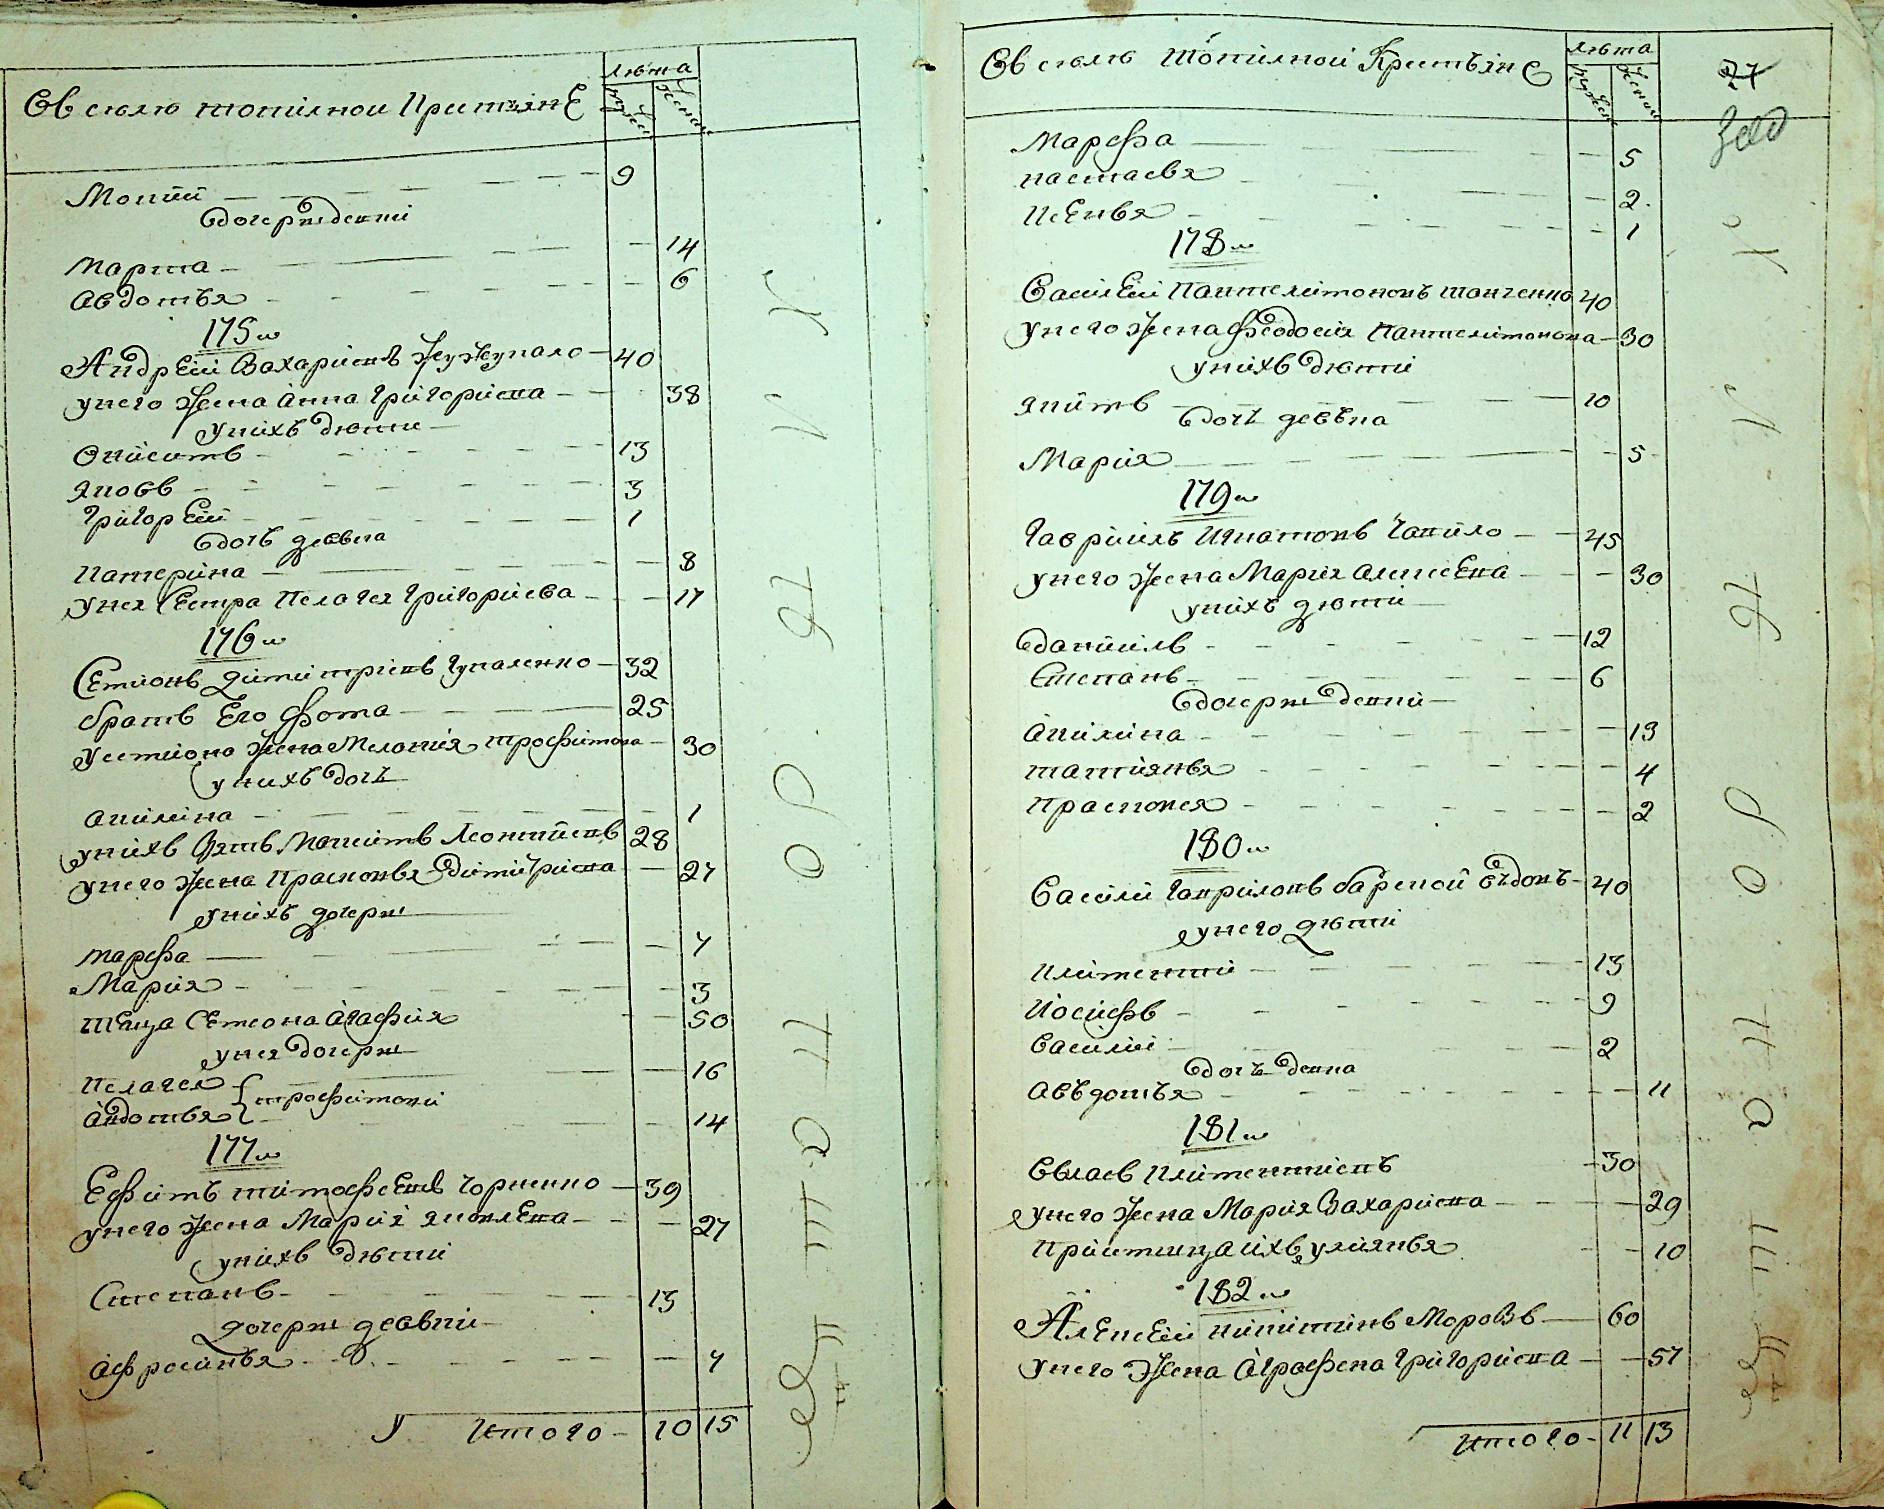 Въ селѣ топилной Крестьяне
лѣта
мужес
женс
Мокий 9
дочери девки
Марта 14
Авдотья 6
175 и
Андрей Захариевъ Жужукало 40
у него жена Анна Григориева 38
у нихъ дѣти
Онисимъ 13
Яковъ 3
Григорей 1
дочь девка
Катерина 8
у нея сестра Пелагея Григориева 17
176 и
Семионъ Димитриевъ Чупаленко 32
братъ Его Фома 25
у семиона жена Мелания трофимова 30
у нихъ дочь
Акилина 1
у нихъ зять Максимъ Леонтиевъ 28
у него жена Прасковья Димитриева 27
у нихъ дочери
Марфа 7
Мария 3
теща Семеона Агафия 50
у нея дочери
Пелагея 16
трофимови
Авдотья 14
177 и
Ефимъ тимофеевъ Горкенко 39
у него жена Мария яковлева 27
у нихъ дѣти
Степанъ 13
дочери девки
Афросинья 7
Итого 10 15
Въ селѣ топилной Крестьяне
лѣта
мужес
женс
27
Марфа 5
настасья 2
Ксенья 1
178 и
Василей Пантелимоновъ шанченко 40
у него жена Феодосия Пантелимонова 30
у нихъ дѣти
якимъ 10
дочь девка
Мария 5
179 и
Гавриилъ Игнатовъ Чапило 45
у него жена Мария алексеева 30
у нихъ дѣти
Даниилъ 12
Степанъ 6
дочери девки
Акилина 13
татиянья 4
Прасковея 2
180 и
Василий Гаврилов барской вдовъ 40
у него дѣти
Климентий 13
Иосифъ 9
Василий 2
дочь девка
Авъдотья 11
181 и
Власъ Климентиевъ 30
у него жена Мария Захариева 29
Приимица ихъ улиянья 10
182 и
Алексей никитинъ Морозъ 60
у него жена Аграфена Григориева 57
Итого 11 13